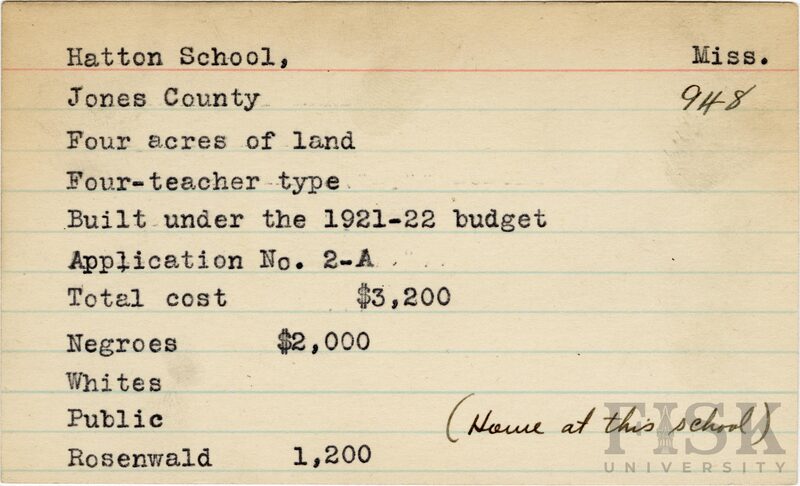 Hatton School, Miss.
Jones County 948
Four acres of land
Four-teacher type
Built under the 1921-22 budget
Application No. 2-A
Total cost $3,200
Negroes $2,000
Whites
Public
(Home at this school)
Rosenwald 1,200
FISK
UNIVERSITY